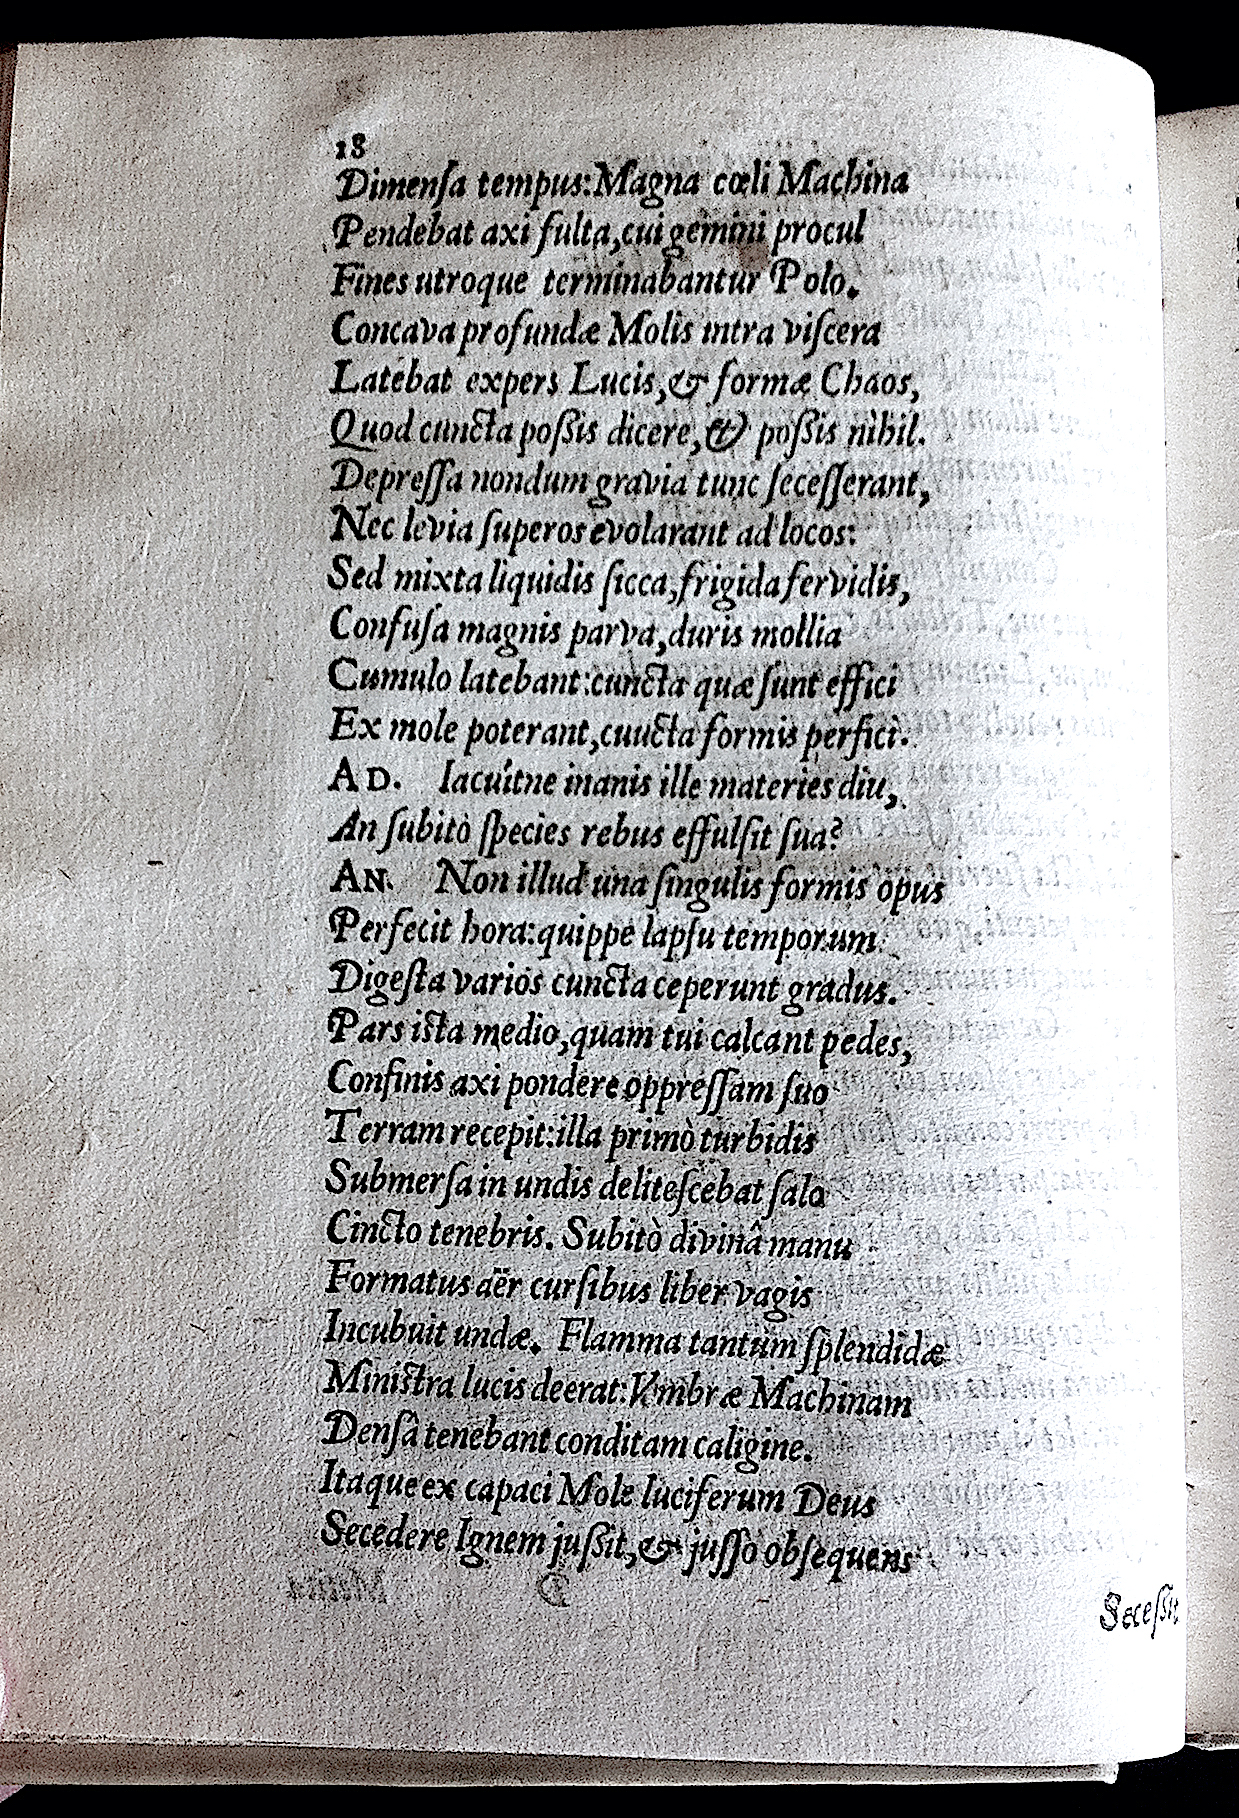 18
Dimenſa tempus: Magna cœli Machina
Pendebat axi fulta, cui gemini procul
Fines utroque terminabantur Polo.
Concava profundæ Molis intra viſcera
Latebat expers Lucis, & formæ Chaos,
Quod cuncta poſſis dicere, & poſſis nihil.
Depreſſa nondum gravia tunc ſeceſſerant,
Nec levia ſuperos evolarant ad locos:
Sed mixta liquidis ſicca, frigida fervidis,
Confuſa magnis parva, duris mollia
Cumulo latebant: cuncta quæ ſunt effici
Ex mole poterant, cuucta formis perfici.
AD. Iacuítne inanis ille materies diu,
An ſubitò ſpecies rebus effulſit ſua?
AN. Non illud una ſingulis formis opus
Perfecit hora: quippe lapſu temporum
Digeſta varios cuncta ceperunt gradus.
Pars iſta medio, quam tui calcant pedes,
Confinis axi pondere oppreſſam ſuo
Terram recepit: illa primò turbidis
Submerſa in undis deliteſcebat ſalo
Cincto tenebris. Subitò divinâ manu
Formatus aër curſibus liber vagis
Incubuit undæ. Flamma tantum ſplendidæ
Miniſtra lucis deerat: Vmbræ Machinam
Denſâ tenebant conditam caligine.
Itaque ex capaci Mole luciferum Deus
Secedere Ignem juſſit, & juſſo obſequens
Seceſſit